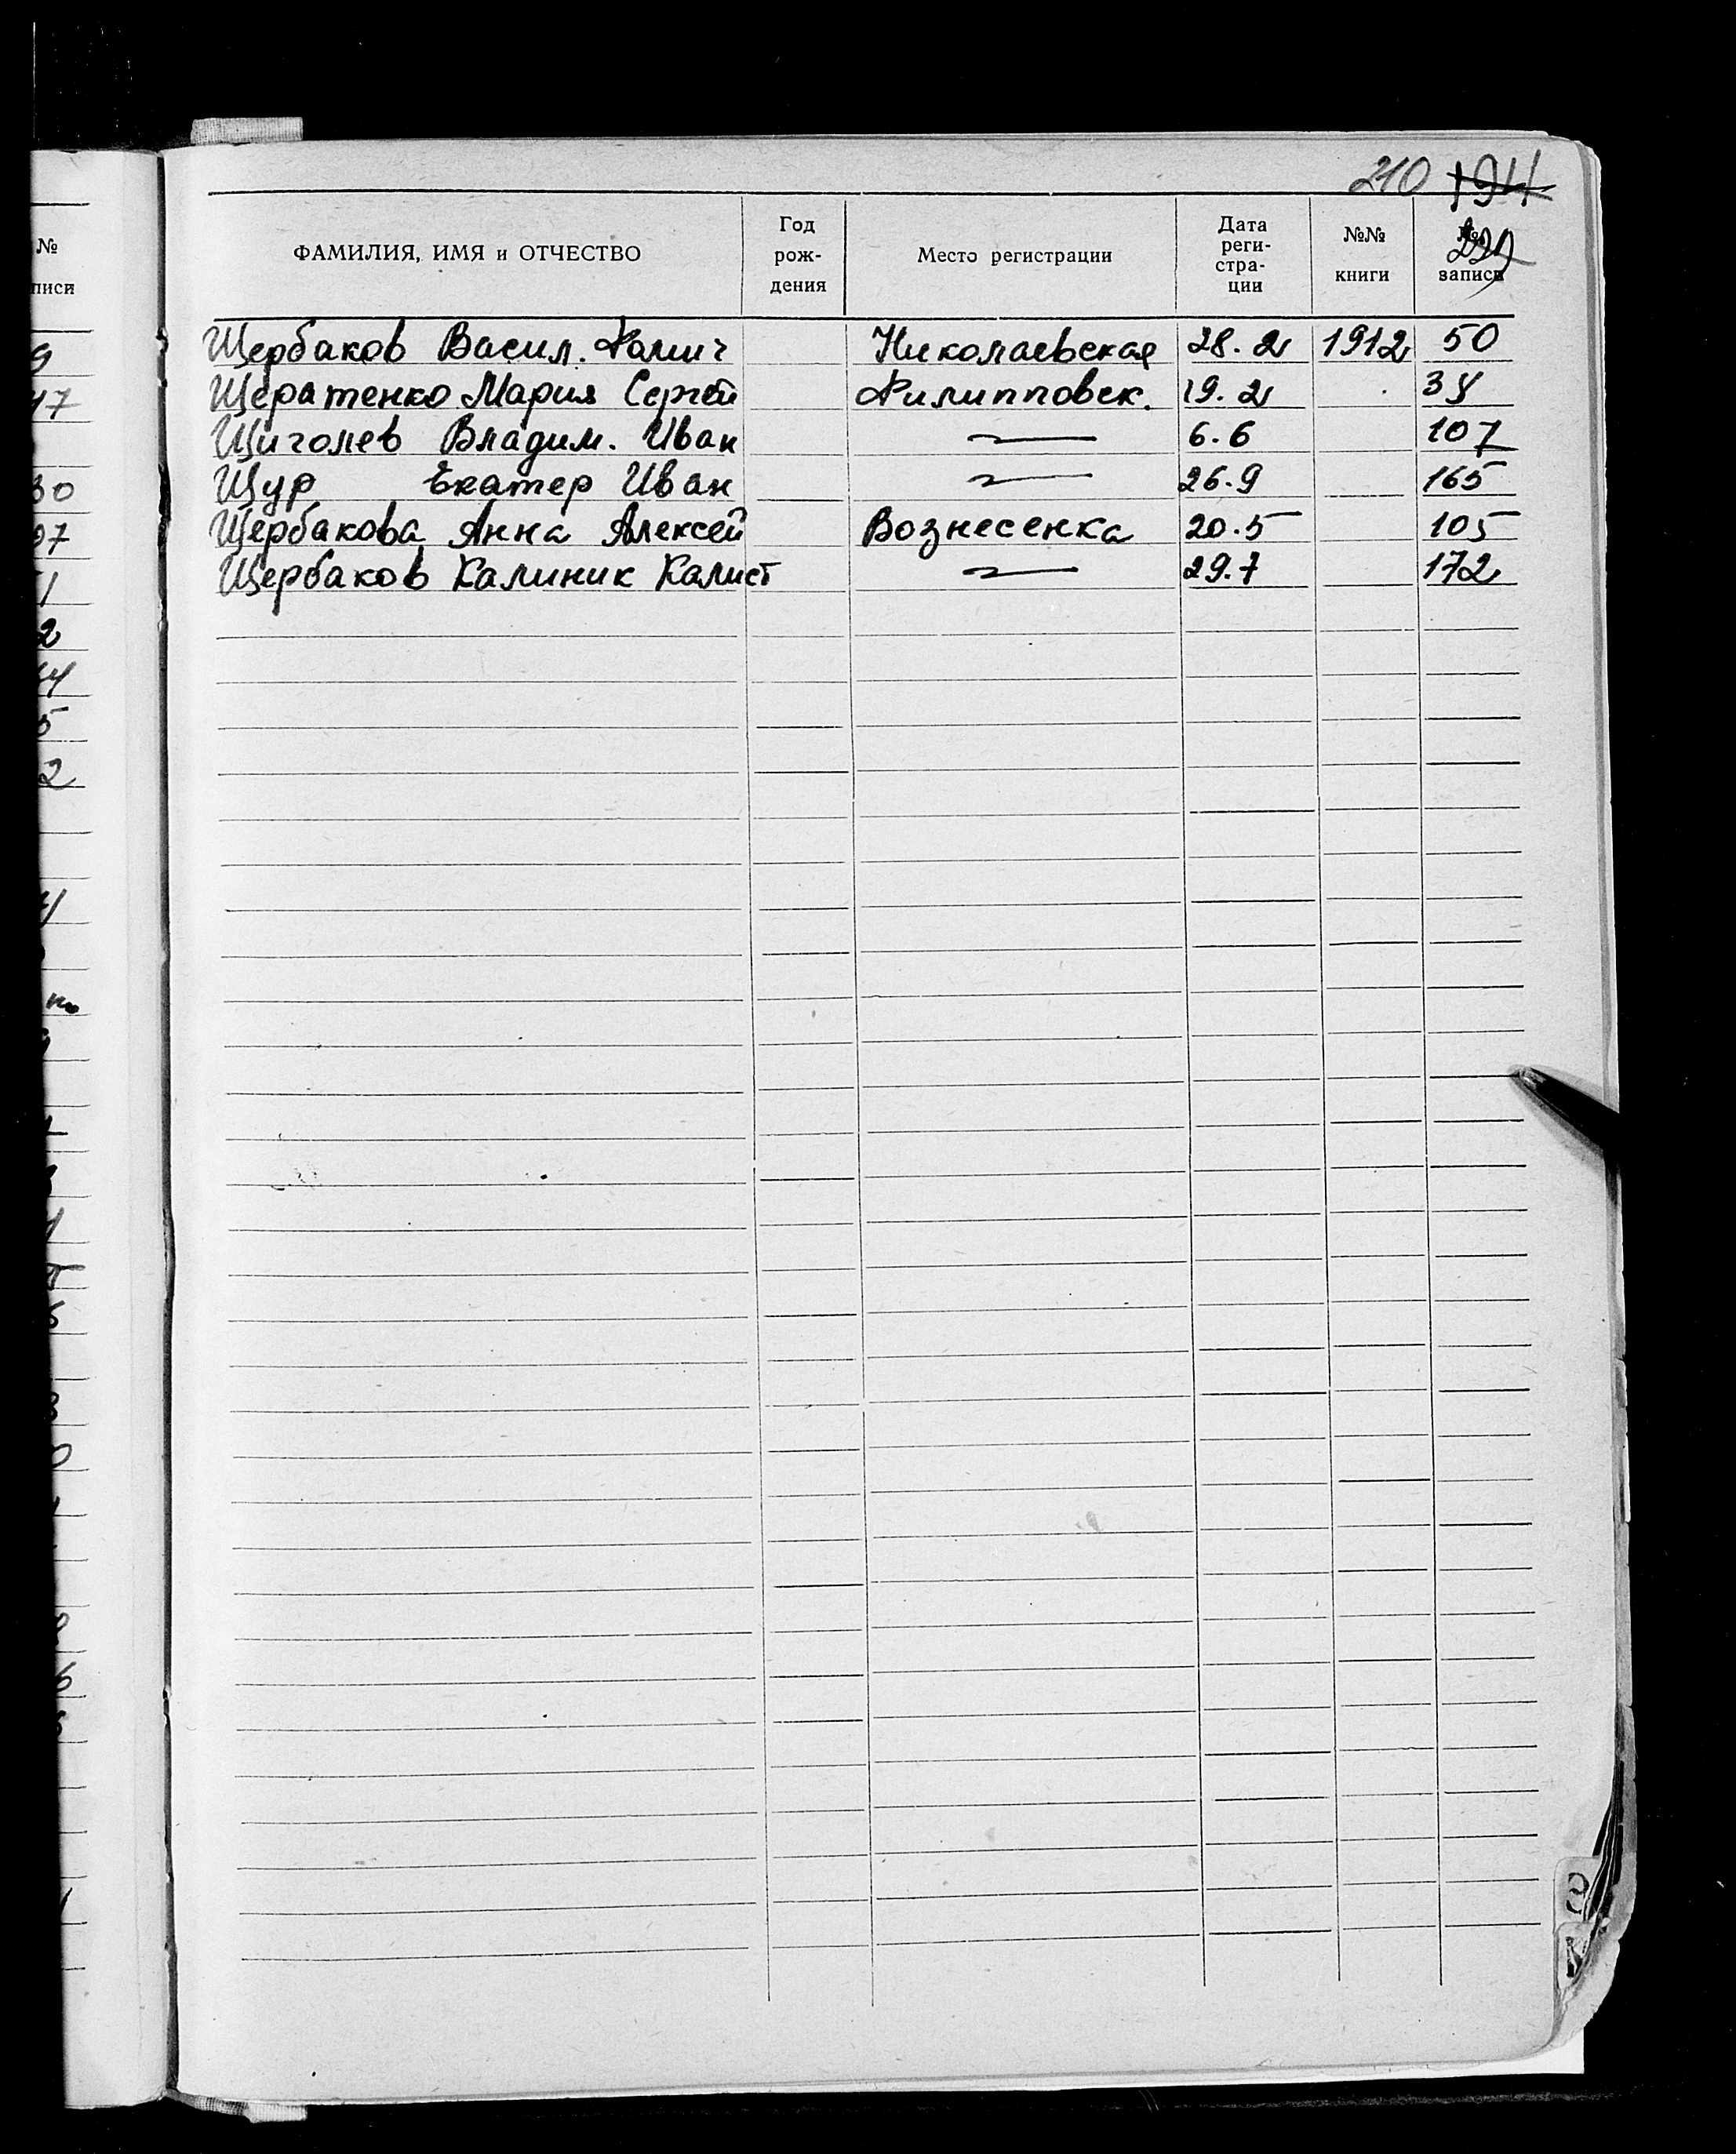 210 194
ФАМИЛИЯ, ИМЯ и ОТЧЕСТВО Год рождения Место регистрации Дата регистрации №№ книги №№ записи
Щербаков Васил. Фомич Николаевская 28.2 1912 50
Мария Сергей Филипповск. 19.2
Щиголев Владим. Иван 6.6 107
Щур Екатер Иван 26.9 165
Щербакова Анна Алексей Вознесенка 20.5 105
Щербаков Калиник Калист 29.7 172